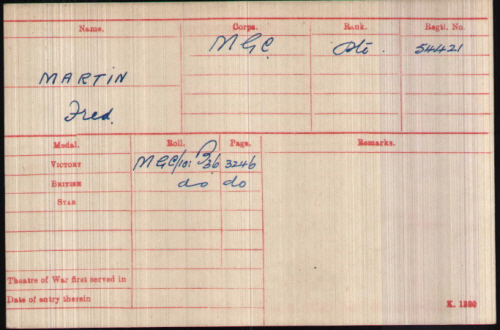 Name. Corps. Rank. Regtl. No.
MGC Pte. 54421
MARTIN
Fred.
Medal. Roll. Page. Remarks.
VICTORY MGC/101 B36 3246
BRITISH do do
STAR
Theatre of War first served in
Date of entry therein
K. 1380